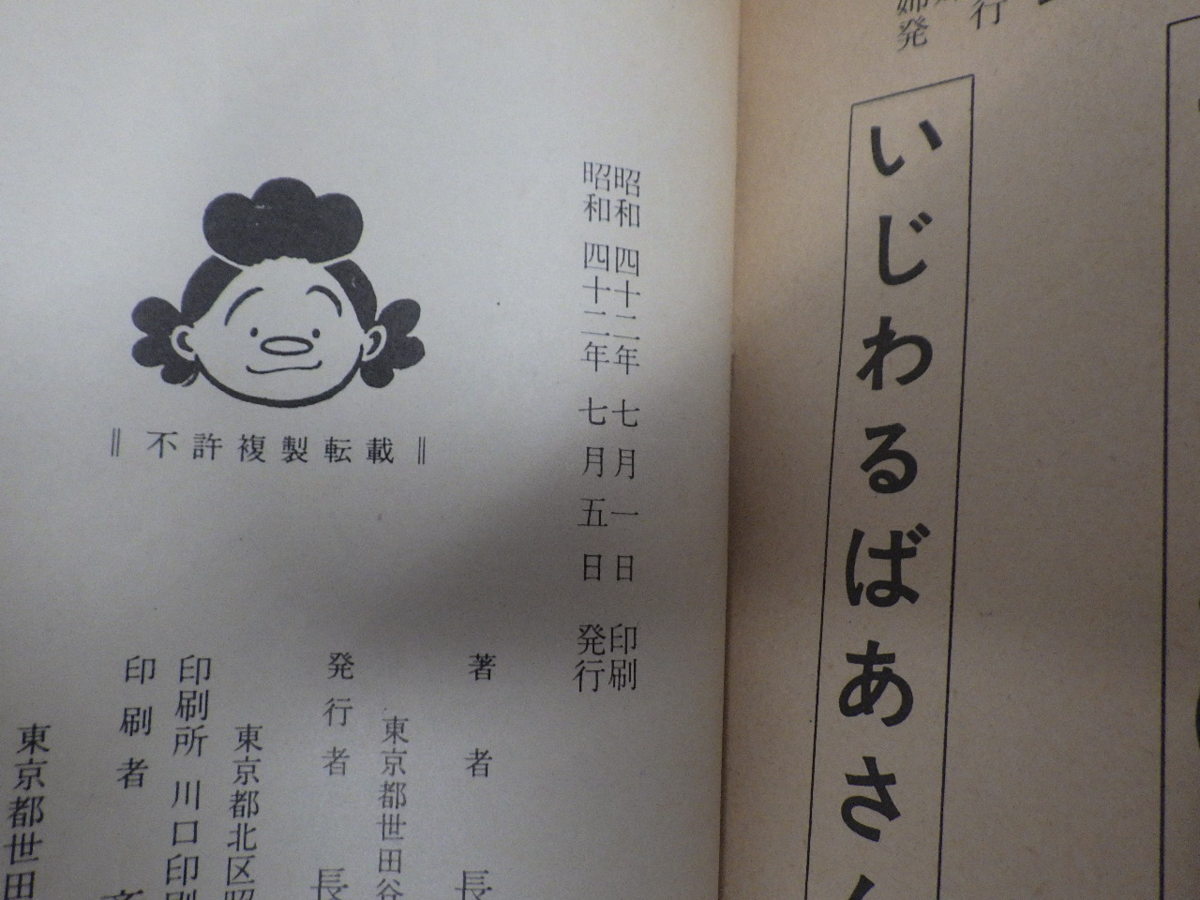 発行
いじわるばあさん
昭和四十二年七月一日印刷
昭和四十二年七月五日発行
‖不許複製転載‖
著者 長
東京都世田谷
発行者 長
東京都北区
印刷所 川口印刷
印刷者
東京都世田